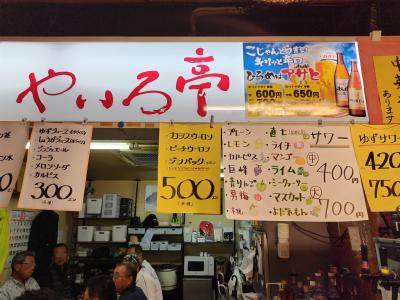 やいろ亭
こじゃんとうまい!
キリッと辛口
ひろめはアサヒ
600円
650円
ゆずジュース
しょうがジュース
ジンジャエール
コーラ
メロンソーダ
カルピス
300
カシスウーロン
ピーチウーロン
500
プレーン
レモン
カルピス
巨峰
青りんご
男梅
ライチ
マンゴー
ライム
シークワーサー
マスカット
よだれもん
サワー
中
400円
大
700円
ゆずサワー
420
750
あります